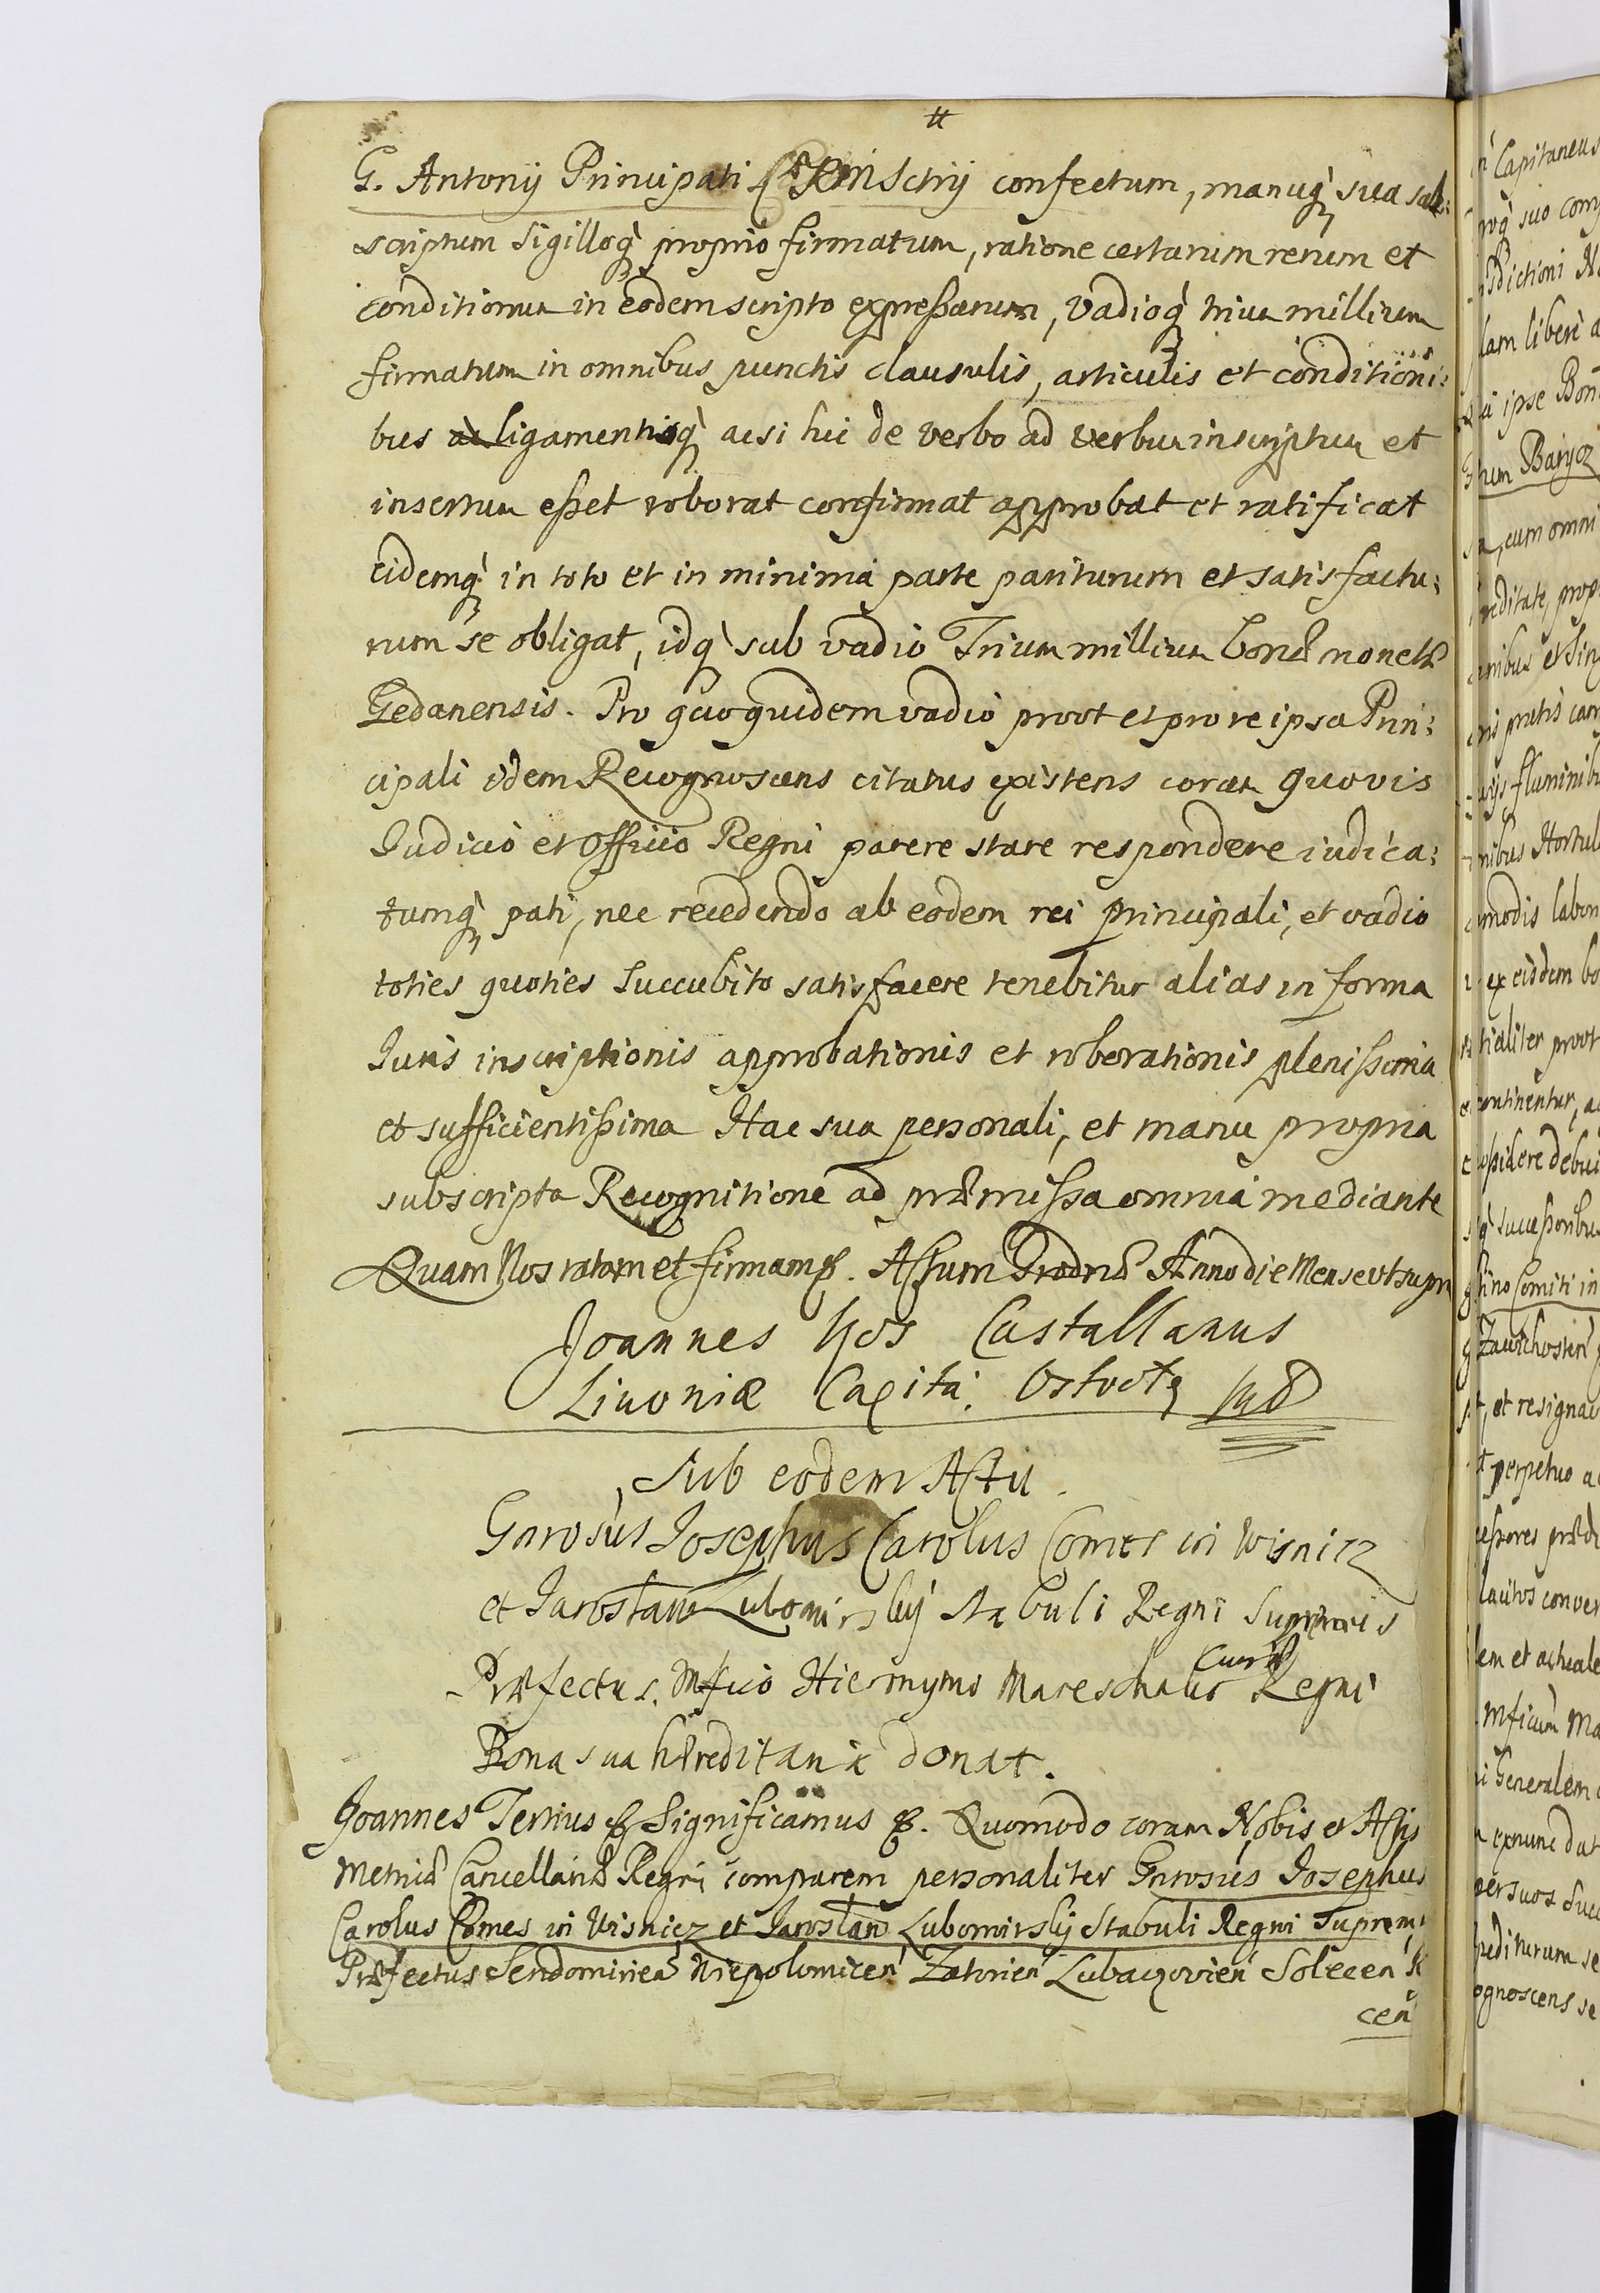 G. Antonij Principati confectum, manuq̀ sua sub:
scriptum Sigilloq̀ proprio firmatum, ratione certarum rerum et
conditionum in eodem scripto expressarum, Vadioq̀ trium millium
firmatum in omnibus punctis clausulis, articulis et conditioni:
bus ligamentisq̀ acsi hic de verbo ad verbum inscriptum et
insertum esset roborat confirmat approbat et ratificat
eidemq̀ in toto et in minima parte pariturum et satisfactu:
rum se obligat, idq̀ sub vadio Trium millium bonæ monetæ
Gedanensis. Pro quoquidem vadio proot et pro re ipsa Prin:
cipali idem Recognoscens citatus existens coram quovis
Iudicio et Officio Regni parere stare respondere iudica:
tumq̀ pati, nec recedendo ab eodem rei principali, et vadio
toties quoties Succubito satisfacere tenebitur alias in forma
Iuris inscriptionis approbationis et roborationis plenissima
et sufficientissima Hac sua personali, et manu propria
subscripta Recognitione ad præmissa omnia mediante
Quam Nos ratam et firmam &. Actum Grodnæ Anno die Mense ut supra
Joannes Kos Castallanus
Livoniæ Capita:
Sub eodem Actu.
Gnrosus Josephus Carolus Comes in Wisnicz
et Jaroslaw Lubomirskij Stabuli Regni Supremis
Præfectus. Mfico Hieronymo Mareschalco Curiæ Regni
Bona sua hæreditaria donat.
Joannes Tertius & Significamus &. Quomodo coram Nobis et Actis
Metricæ Cancellariæ Regni comparem personaliter Gnrosus Josephus
Carolus Comes in Wisnicz et Jaroslaw Lubomirskij Stabuli Regni Suprem,
Præfectus Sendomirien Niepolomicen Zatorien Lubaczovien Solecen
cen
Capitaneus
suo com
liberè a
ipse Bon
Barycz
cum omni
prop
et Sin
pratis cam
fluminibu
Hortul
labor
ex eisdem bo
proot
continentur, a
debui
successoribu
Comiti in
et resignav
perpetuo a
conver
em et actuale
Mficum Ma
Generalem
exnunc dat
suos succ
se